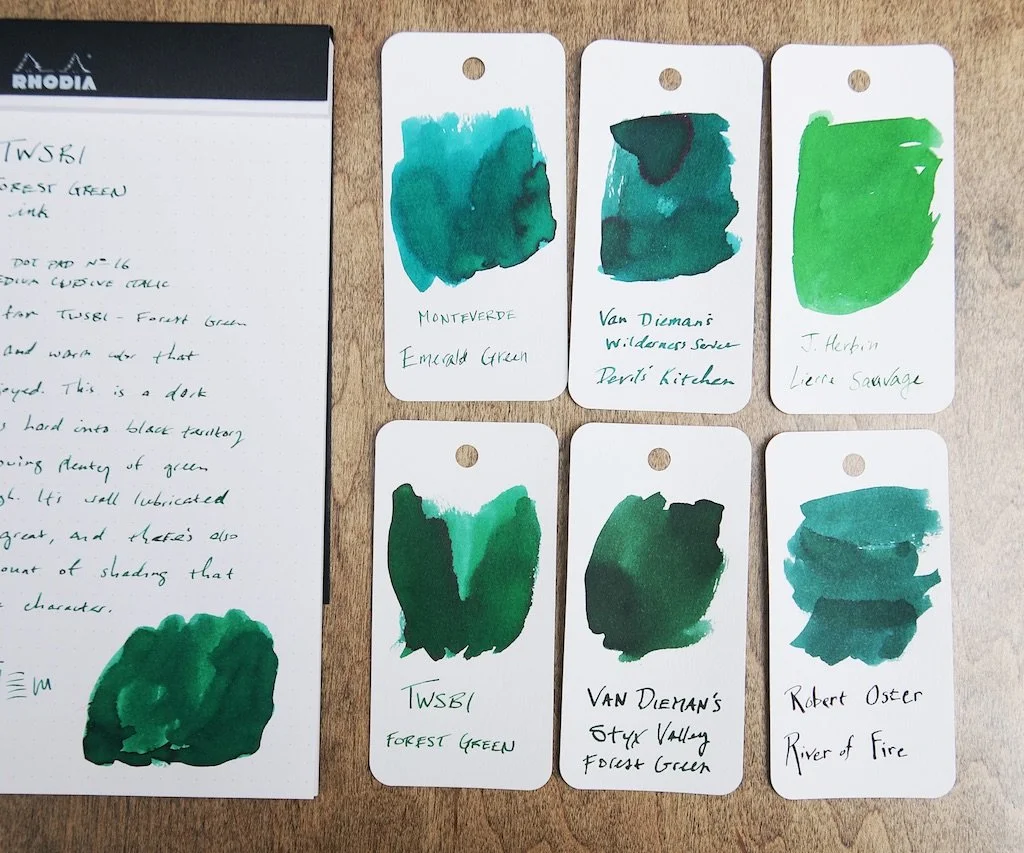 RHODIA
TWSBI
FOREST GREEN
ink
DOT PAD Nº 16
MEDIUM CURSIVE ITALIC
for TWSBI - Forest Green
and warm color that
This is a dark
hard into black territory
plenty of green
It's well lubricated
great, and there's also
of shading that
character.
MONTEVERDE
Emerald Green
Van Dieman's
Wilderness Series
Devil's Kitchen
J. Herbin
Lierre Sauvage
TWSBI
FOREST GREEN
VAN DIEMAN'S
Styx Valley
Forest Green
Robert Oster
River of Fire